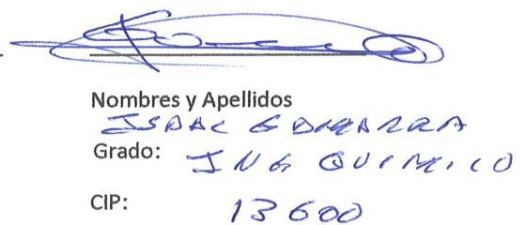 Nombres y Apellidos
ISAAC GAMARRA
Grado: ING QUIMICO
CIP: 13600